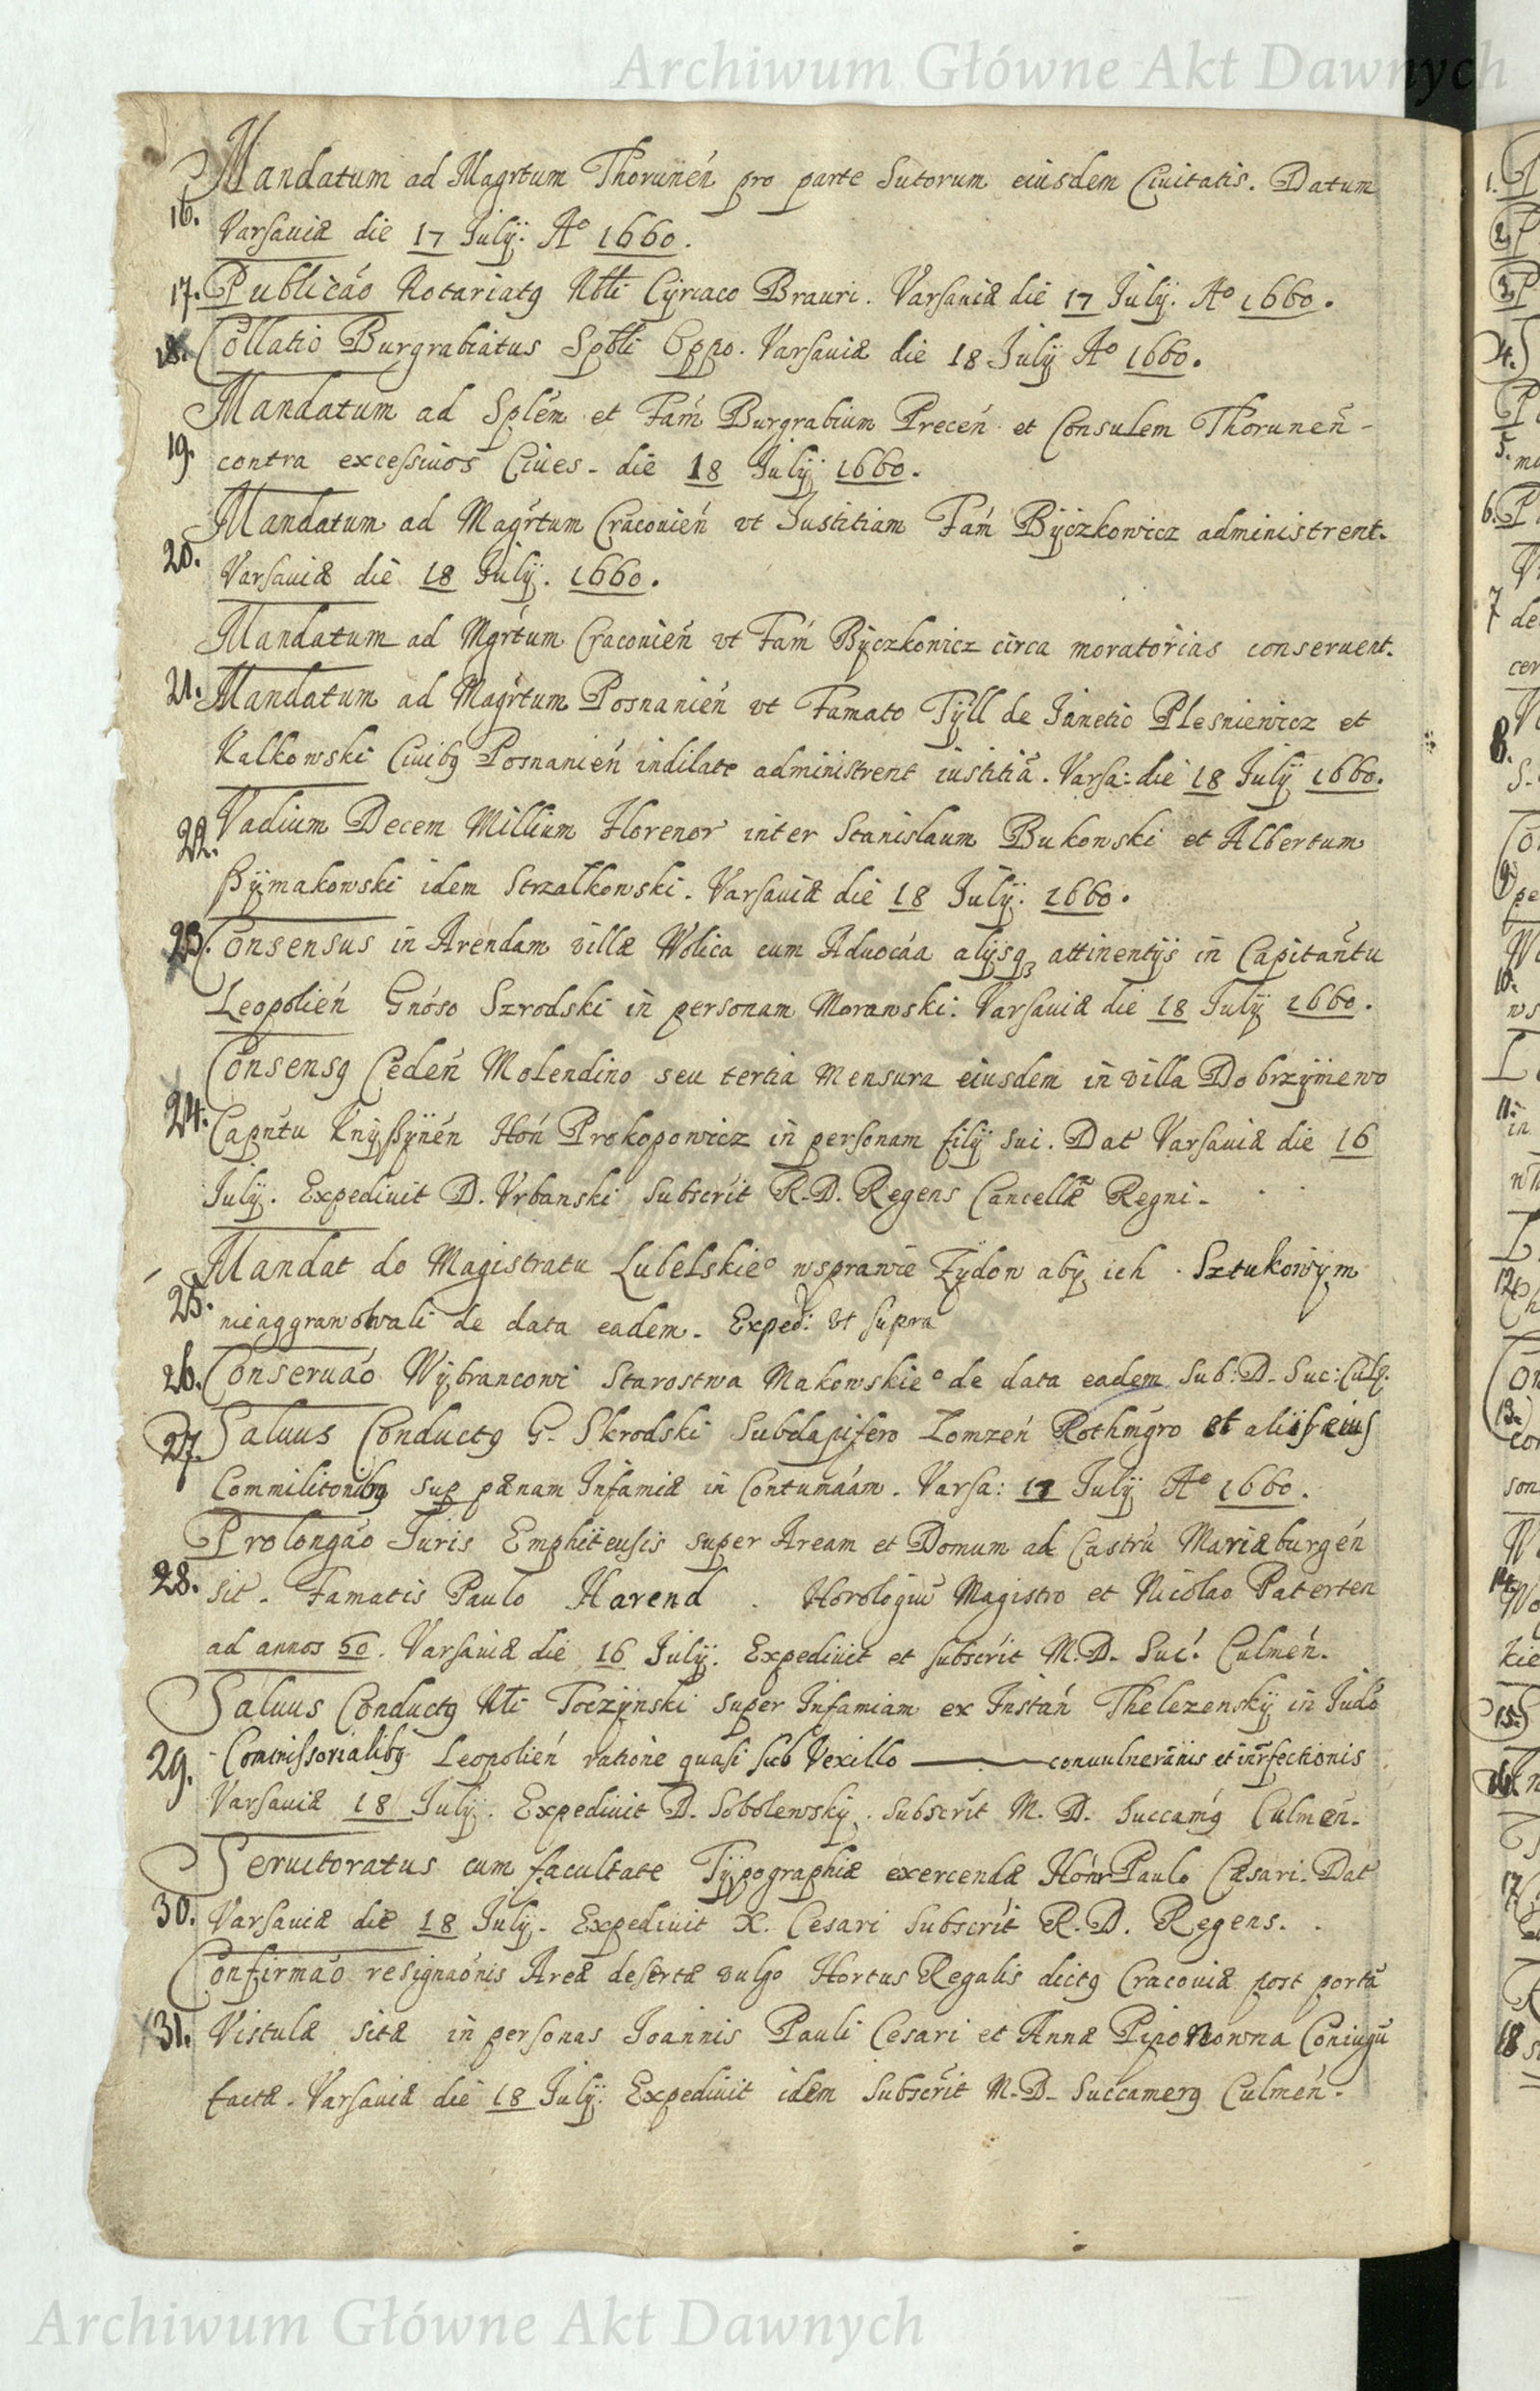 Archiwum Główne Akt Dawnych
Mandatum ad Magrtum Thorunen̄ pro parte Sutorum eiusdem Ciuitatis. Datum
16. Varsauiæ die 17 Iulÿ. Aº 1660.
17. Publicaõ Notariatq Nbli Cÿriaco Brauri. Varsauiæ die 17 Iulÿ. Aº 1660.
18. Collatio Burgrabiatus Spbli Oppo. Varsauiæ die 18 Iulÿ Aº 1660.
Mandatum ad Splem et Fam Burgrabium Precen et Consulem Thorunen̄ -
19. contra excessiuos Ciues - die 18 Iulÿ 1660.
Mandatum ad Magrtum Cracouien̄ vt Iustitiam Fam Bÿczkowicz administrent.
20. Varsauiæ die 18 Iulÿ. 1660.
Mandatum ad Mgrtum Cracouien̄ vt Fam Bÿczkowicz circa moratorias conseruent.
21. Mandatum ad Magrtum Posnanien̄ vt Famato Tÿll de Ianetio Plesniewicz et
Kalkowski Ciuibq Posnanien̄ indilate administrent iustitiā. Varsa: die 18 Iulÿ 1660.
22. Vadium Decem Millium Florenor inter Stanislaum Bukowski et Albertum
ßÿmakowski idem Strzałkowski. Varsauiæ die 18 Iulÿ. 1660.
23. Consensus in Arendam villæ Wolica cum Aduocaa alÿsq attinentÿs in Capitan̄tu
Leopolien̄ Gnoso Szrodski in personam Morawski. Varsauiæ die 18 Iulÿ 1660.
Consensq Ceden̄ Molendino seu tertia Mensura eiusdem in villa Dobrzÿniewo
24. Capn̄tu Knÿßÿnen̄ Hon̄ Prokopowicz in personam filÿ sui. Dat Varsauiæ die 16
Iulÿ. Expediuit D. Vrbanski Subscrit R. D. Regens Cancellæ Regni -
Mandat do Magistratu Lubelskieº wsprawie Zÿdow abÿ ich Sztukowÿm
25. nieaggrawowali de data eadem. Exped: vt supra
26. Conseruaõ Wÿbrancowi Starostwa Makowskieº de data eadem Sub: D. Suc: Culm.
27. Saluus Conductq G. Skrodski Subdapifero Lomzen̄ Rothmgro et aliis eius
Commilitonibq sup pænam Infamiæ in Contumaam. Varsa: 17 Iulÿ Aº 1660.
Prolongaõ Iuris Emphiteusis super Aream et Domum ad Castrū Mariæburgen̄
28. sit. Famatis Paulo Harend. Horologiū Magistro et Nicolao Paterten
ad annos 50. Varsauiæ die 16 Iulÿ. Expediuit et subscrit M. D. Suc. Culmen̄.
Saluus Conductq Nli Toczÿnski super Infamiam ex Instan̄ Thelezenskÿ in Iudo
29. Commissorialibq Leopolien̄ ratione quasi sub Vexillo conuulneraniis et inrfectionis
Varsauiæ 18 Iulÿ. Expediuit D. Sobolewskÿ. Subscrit M. D. Succamq Culmen̄.
Seruitoratus cum facultate Tÿpographiæ exercendæ Honr Paulo Cæsari. Dat
30. Varsauiæ die 18 Iulÿ. Expediuit X. Cesari Subscrit R. D. Regens.
Confirmaõ resignaonis Areæ desertæ vulgo Hortus Regalis dictq Cracouiæ post portā
31. Vistulæ sitæ in personas Ioannis Pauli Cesari et Annæ Piponowna Coniugū
factæ. Varsauiæ die 18 Iulÿ. Expediuit idem Subscrit M. D. Succamerq Culmen̄.
Archiwum Główne Akt Dawnych